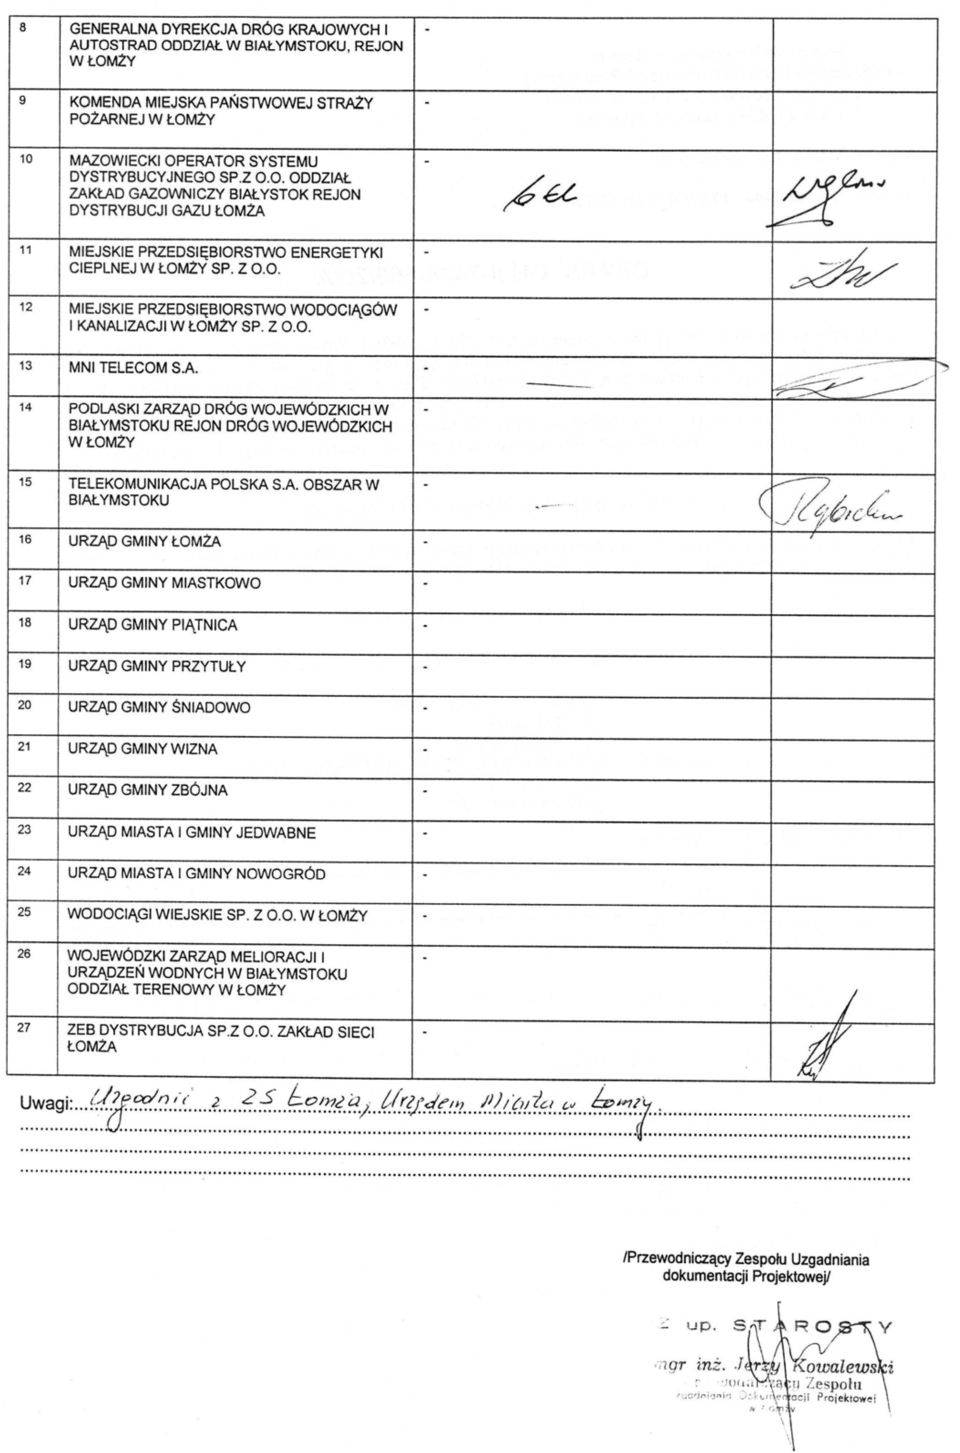 8 GENERALNA DYREKCJA DRÓG KRAJOWYCH I -
AUTOSTRAD ODDZIAŁ W BIAŁYMSTOKU, REJON
W ŁOMŻY
9 KOMENDA MIEJSKA PAŃSTWOWEJ STRAŻY -
POŻARNEJ W ŁOMŻY
10 MAZOWIECKI OPERATOR SYSTEMU -
DYSTRYBUCYJNEGO SP.Z O.O. ODDZIAŁ
ZAKŁAD GAZOWNICZY BIAŁYSTOK REJON
DYSTRYBUCJI GAZU ŁOMŻA
11 MIEJSKIE PRZEDSIĘBIORSTWO ENERGETYKI -
CIEPLNEJ W ŁOMŻY SP. Z O.O.
12 MIEJSKIE PRZEDSIĘBIORSTWO WODOCIĄGÓW -
I KANALIZACJI W ŁOMŻY SP. Z O.O.
13 MNI TELECOM S.A. -
14 PODLASKI ZARZĄD DRÓG WOJEWÓDZKICH W -
BIAŁYMSTOKU REJON DRÓG WOJEWÓDZKICH
W ŁOMŻY
15 TELEKOMUNIKACJA POLSKA S.A. OBSZAR W -
BIAŁYMSTOKU
16 URZĄD GMINY ŁOMŻA -
17 URZĄD GMINY MIASTKOWO -
18 URZĄD GMINY PIĄTNICA -
19 URZĄD GMINY PRZYTUŁY -
20 URZĄD GMINY ŚNIADOWO -
21 URZĄD GMINY WIZNA -
22 URZĄD GMINY ZBÓJNA -
23 URZĄD MIASTA I GMINY JEDWABNE -
24 URZĄD MIASTA I GMINY NOWOGRÓD -
25 WODOCIĄGI WIEJSKIE SP. Z O.O. W ŁOMŻY -
26 WOJEWÓDZKI ZARZĄD MELIORACJI I -
URZĄDZEŃ WODNYCH W BIAŁYMSTOKU
ODDZIAŁ TERENOWY W ŁOMŻY
27 ZEB DYSTRYBUCJA SP.Z O.O. ZAKŁAD SIECI -
ŁOMŻA
Uwagi: Uzgodnić z ZS Łomża, Urzędem Miasta w Łomży.
/Przewodniczący Zespołu Uzgadniania
dokumentacji Projektowej/
Z up. STAROSTY
mgr inż. Jerzy Kowalewski
Zespołu
Dokumentacji Projektowej
w Łomży